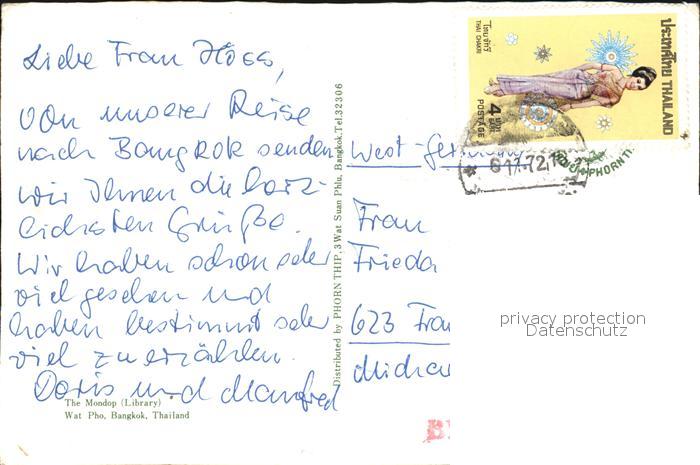 Liebe Frau Hoss,
von unserer Reise
nach Bangkok senden
wir Ihnen die herz-
lichsten Grüße.
Wir haben schon sehr
viel gesehen und
haben bestimmt sehr
viel zu erzählen.
Doris und Manfred
The Mondop (Library)
Wat Pho, Bangkok, Thailand
Distributed by PHORN THIP, 3 Wat Suan Phlu, Bangkok, Tel. 32306
West-Germany
Frau
Frieda
623 Fran
ประเทศไทย THAILAND
ไทยจักรี
THAI CHAKRI
4 บาท
BAHT
POSTAGE
PHORN T
privacy protection
Datenschutz